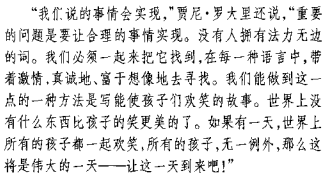 “我们说的事情会实现，”贾尼·罗大里还说，“重要
的问题是要让合理的事情实现。没有人拥有法力无边
的词。我们必须一起来把它找到，在每一种语言中，带
着激情，真诚地、富于想像地去寻找。我们能做到这一
点的一种方法是写能使孩子们欢笑的故事。世界上没
有什么东西比孩子的笑更美的了。如果有一天，世界上
所有的孩子都一起欢笑，所有的孩子，无一例外，那么这
将是伟大的一天——让这一天到来吧！”